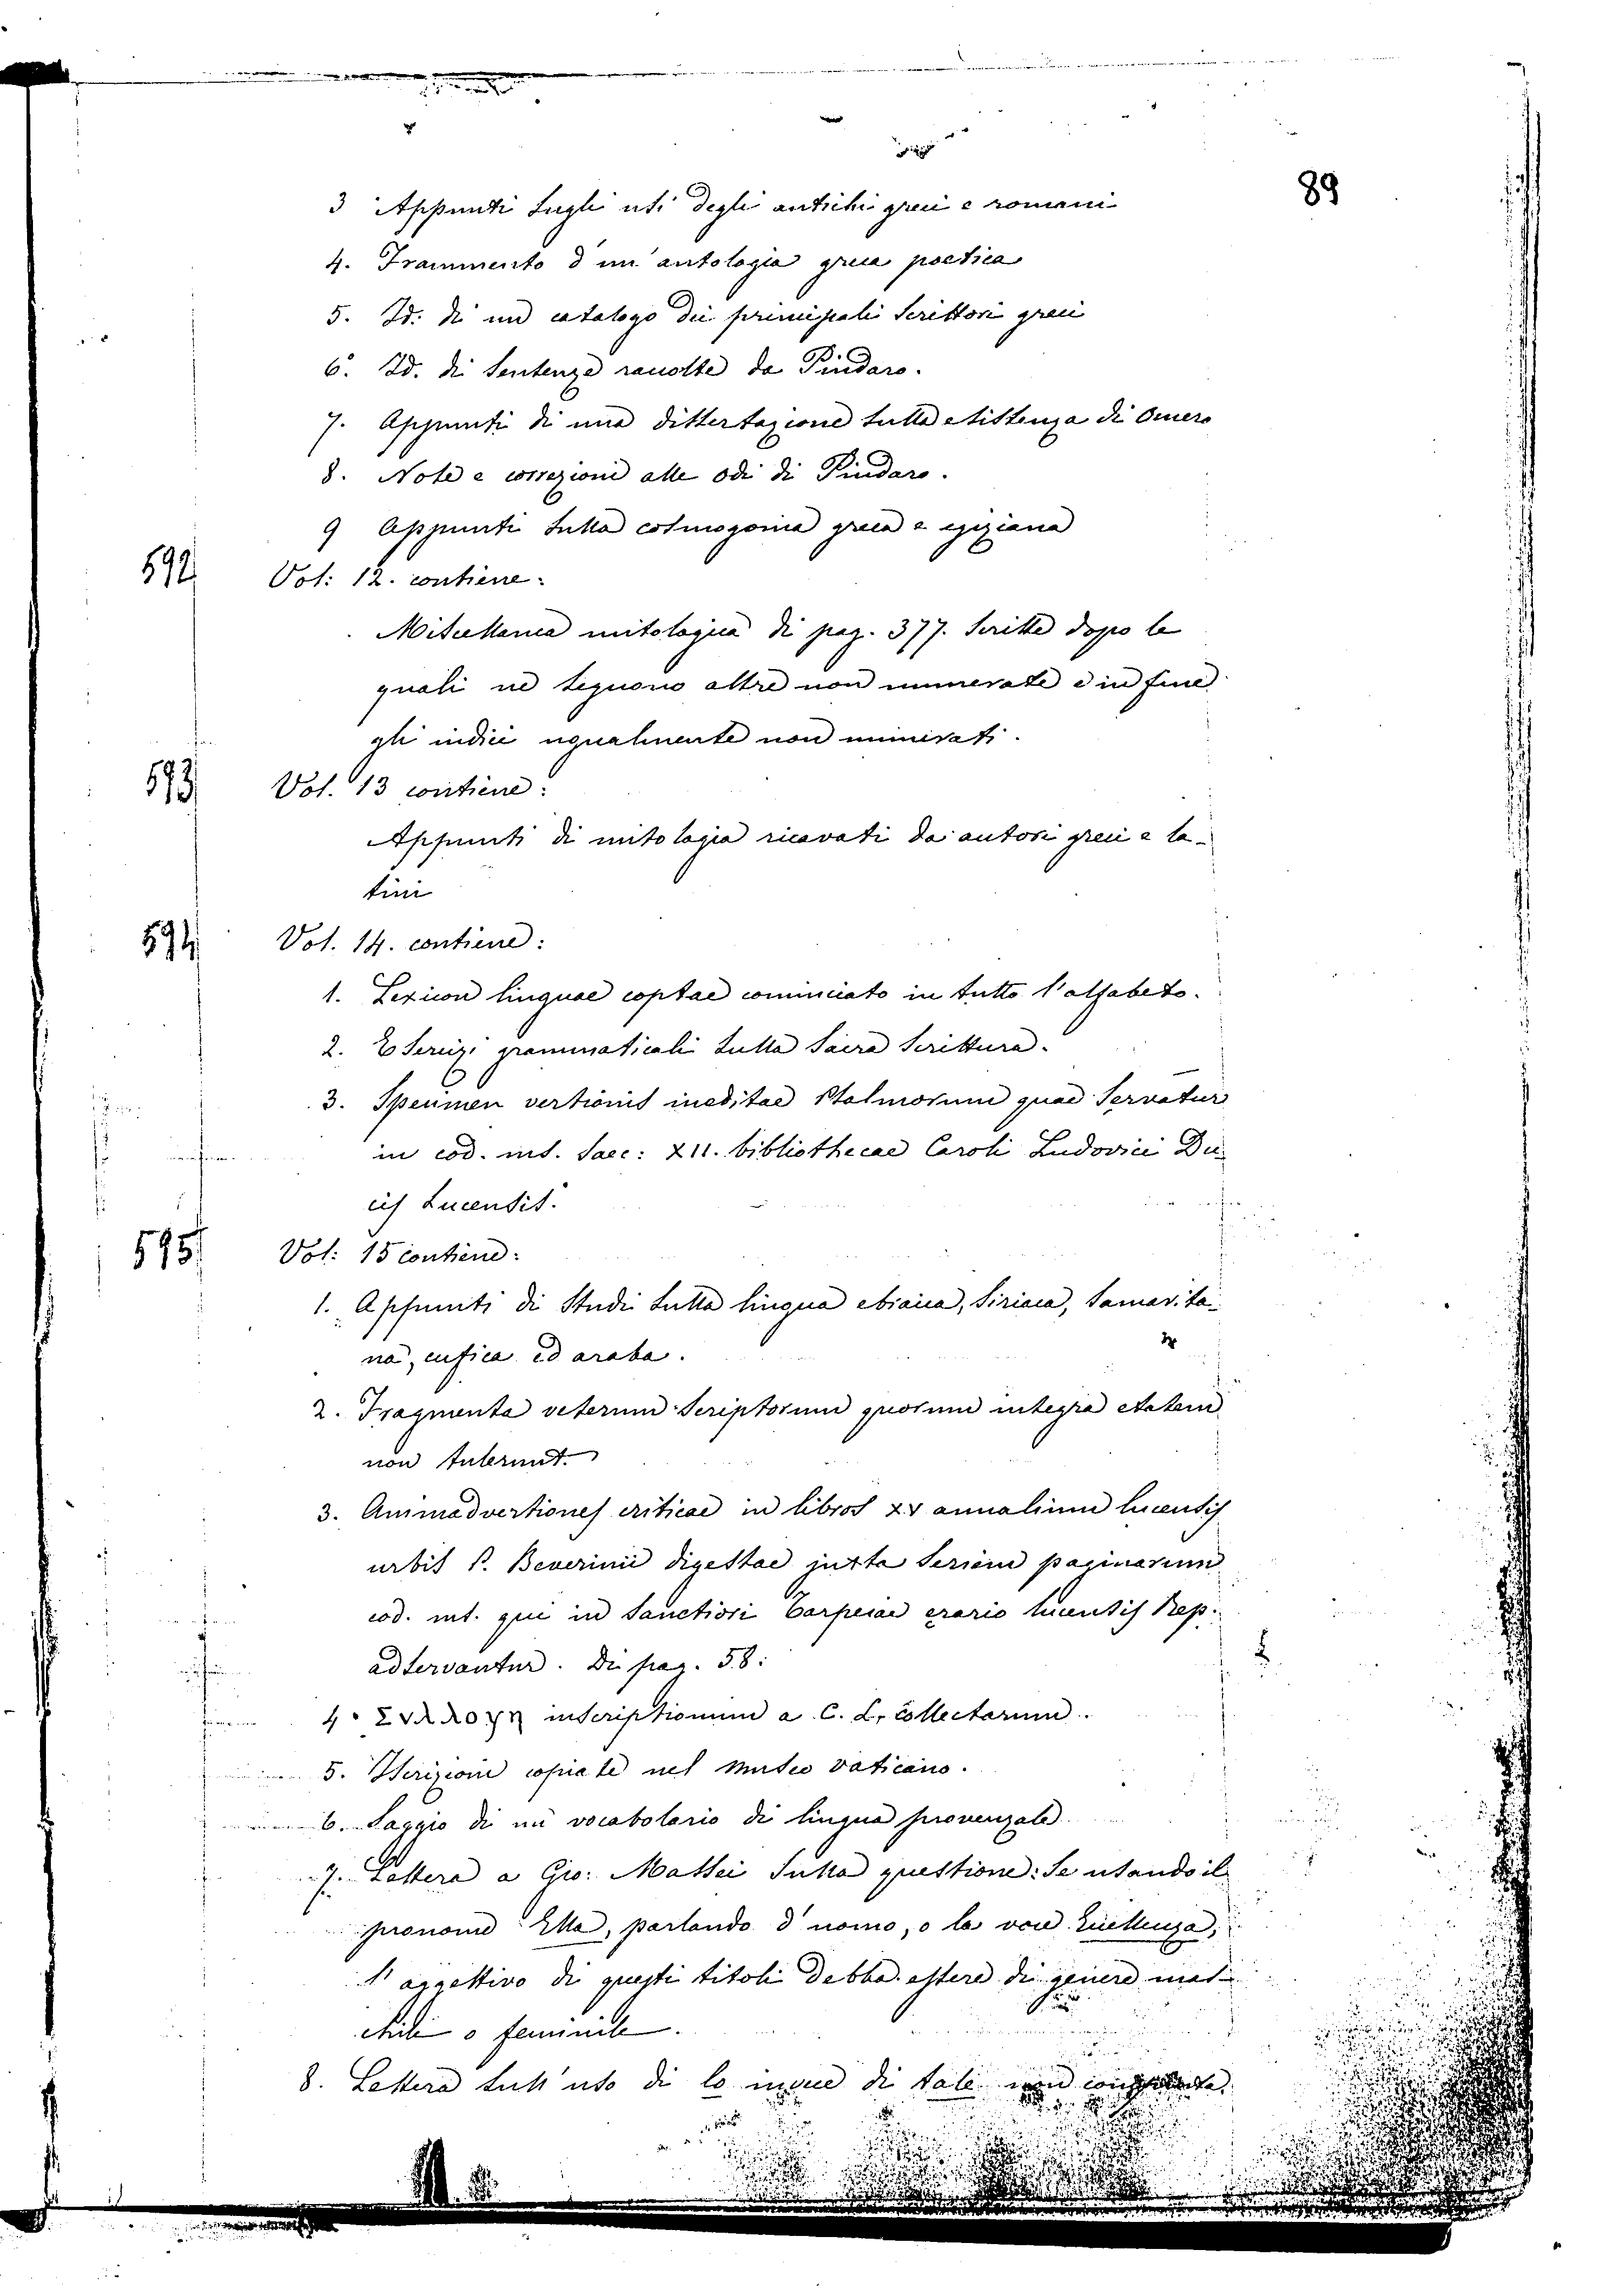 89
3 Appunti sugli usi degli antichi greci e romani
4. Frammento d'un'antologia greca poetica
5. Id. di un catalogo dei principali scrittori greci
6. Id. di sentenze racolte da Pindaro.
7. Appunti di una dissertazione sulla esistenza di Omero
8. Note e correzioni alle odi di Pindaro.
9 Appunti sulla cosmogonia greca e egiziana
592 Vol: 12. contiene:
Miscellanea mitologica di pag. 377. scritte dopo le
quali ne seguono altre non numerate e in fine
gli indici ugualmente non numerati.
593 Vol. 13 contiene:
Appunti di mitologia ricavati da autori greci e la-
tini
594 Vol. 14. contiene:
1. Lexicon linguae coptae cominciato in tutto l'alfabeto.
2. Esercizi grammaticali sulla Sacra Scrittura.
3. Specimen versionis ineditae Psalmorum quae servatur
in cod. ms. saec: XII. bibliothecae Caroli Ludovici Du-
cis Lucensis.
595 Vol: 15 contiene:
1. Appunti di studi sulla lingua ebraica, siriaca, samarita-
na, cufica ed araba.
2. Fragmenta veterum scriptorum quorum integra etatem
non tulerunt.
3. Animadversiones criticae in libros XV annalium lucensis
urbis P. Beverinii digestae juxta seriem paginarum
cod. ms. qui in sanctiori Tarpeiae erario lucensis Reip.
adservantur. Di pag. 58:
4. Συλλογη inscriptionum a C. L. collectarum.
5. Iscrizioni copiate nel museo vaticano.
6. Saggio di un vocabolario di lingua provenzale
7. Lettera a Gio: Massei sulla questione: Se usando il
pronome Ella, parlando d'uomo, o la voce Eccellenza,
l'aggettivo di questi titoli debba essere di genere mas-
chile o feminile.
8. Lettera sull'uso di lo invece di tale non